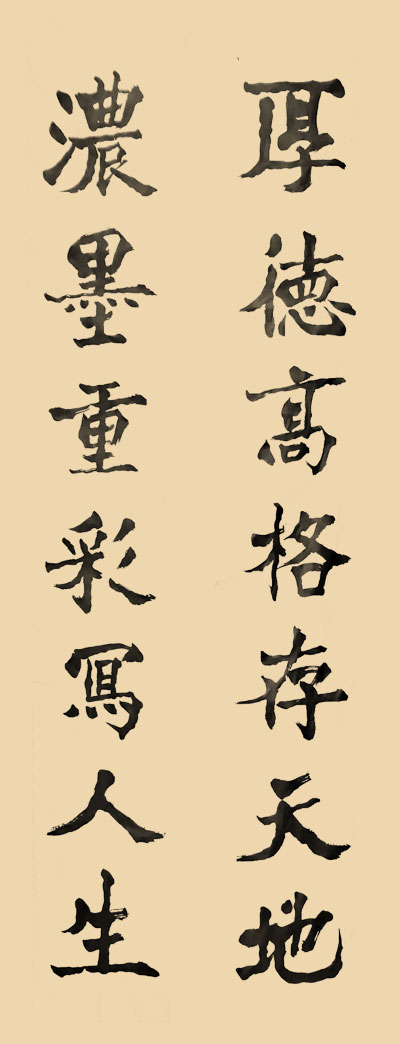 厚德高格存天地
濃墨重彩寫人生